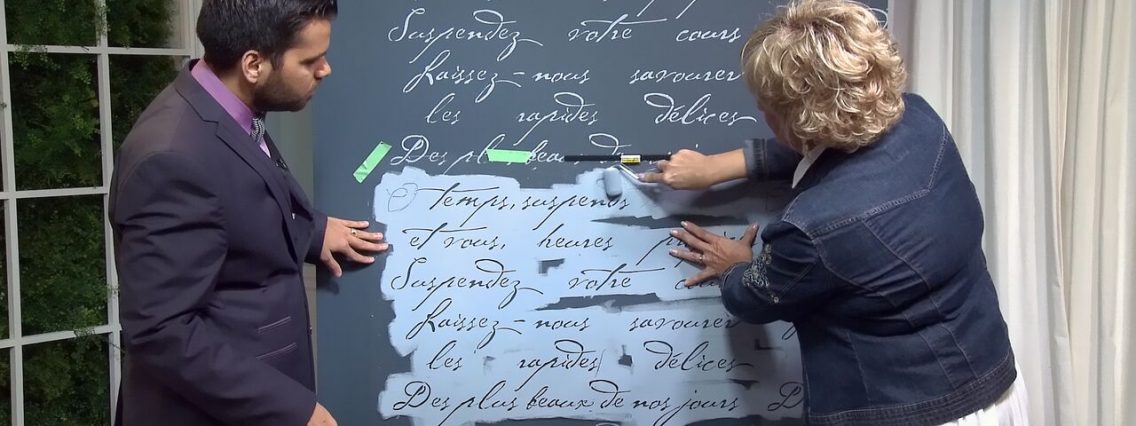 Suspendez votre cours
Laissez-nous savourer
les rapides délices
Des plus beaux de
temps, suspends
et vous, heures
Suspendez votre
Laissez-nous savourer
les rapides délices
Des plus beaux de nos jours D